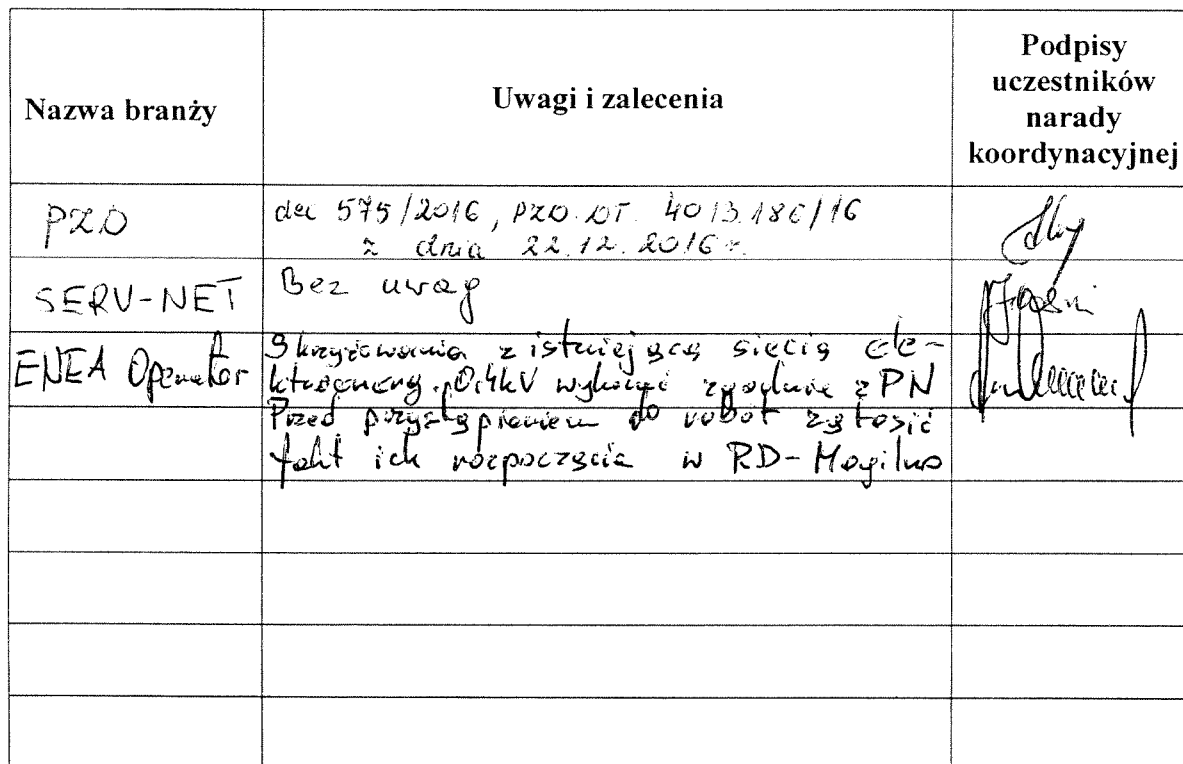 Nazwa branży
Uwagi i zalecenia
Podpisy
uczestników
narady
koordynacyjnej
PZD
dec 575/2016, PZD.DT. 4013.186/16
z dnia 22.12.2016 r.
SERV-NET
Bez uwag
ENEA Operator
Skrzyżowania z istniejącą siecią ele-
ktroenerg. 0,4kV wykonać zgodnie z PN
Przed przystąpieniem do robót zgłosić
fakt ich rozpoczęcia w RD-Mogilno